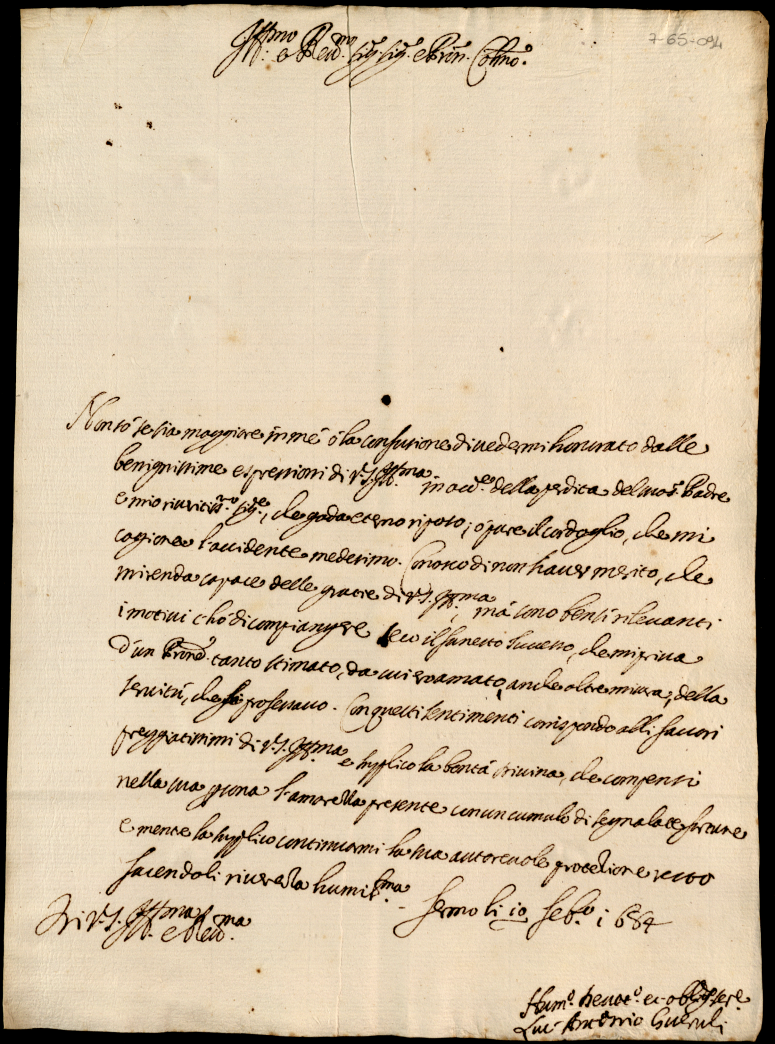 7-65-094
Ill.mo e Rev.mo Sig. Sig. e Pron. Col.mo
Non sò se sia maggiore in mè ò la confusione di vedermi honorato dalle
benignissime espressioni di V.S. Ill.ma in occ.e della perdita del mio Sr. Padre
e mio riverit.mo Sig.re, che goda eterno riposo; ò pure il cordoglio, che mi
cagiona l'accidente medesimo. Conosco di non haver merito, che
mi renda capace delle gratie di V.S. Ill.ma, mà sono bensì rilevanti
i motivi c'hò di compiangere seco il funesto successo, che mi priva
d'un Prone. tanto stimato, da cui ero amato, anche oltre misura, della
servitù, che li professavo. Con questi sentimenti corrispondo alli favori
preggiatissimi di V.S. Ill.ma e supplico la bontà divina, che compensi
nella sua persona l'amarezza presente con un cumulo di segnalate fortune
e mentre la supplico continuarmi la sua autorevole protettione resto
facendoli riverenza humil.ma
Fermo li 10 Feb.o 1684
Di V.S. Ill.ma e Rev.ma
Hum.o Devot.o et Oblig. Ser.e
Luc' Antonio